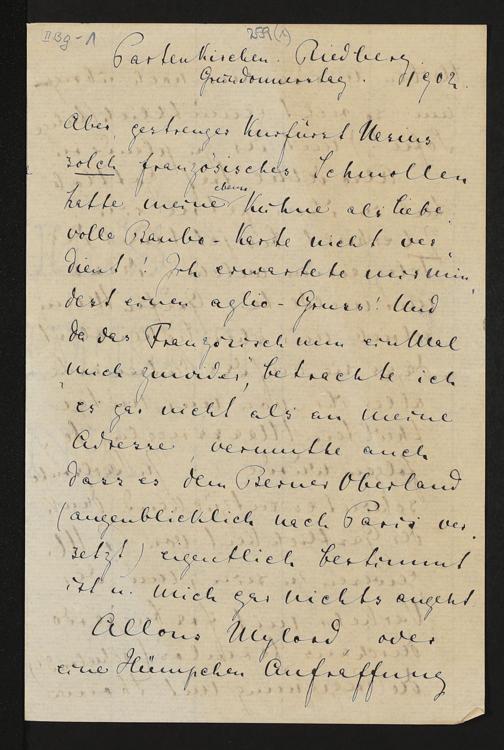 II Bg - 1
259 (1)
Partenkirchen. Riedberg.
Gründonnerstag. 1902.
Aber, gestrenger Kurfürst
solch französisches Schmollen
hatte meine ebenso
Kühne als liebe
volle Baubo-Karte nicht ver
dient! Ich erwartete mir min
dest einen aglio-Gruss! Und
da das Französisch nun einMal
mich betrachte ich
es gar nicht als an meine
Adresse, vermutte auch
dass es dem Berner Oberland
(augenblicklich nach Paris ver
setzt) eigentlich bestimmt
ist u. mich gar nichts angeht
Allons Mylord oder
eine Hümpchen Aufraffung